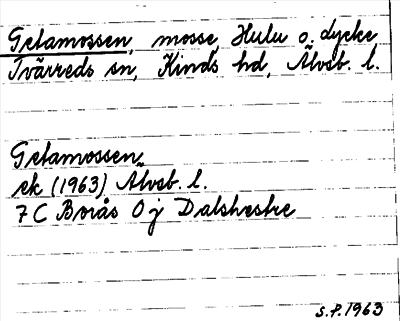 Getamossen, mosse, Hulu o. dycke
Tvärreds sn, Kinds hd, Älvsb. l.
Getamossen,
ek (1963) Älvsb. l.
7 C Borås O j Dalshestre
S.P. 1963